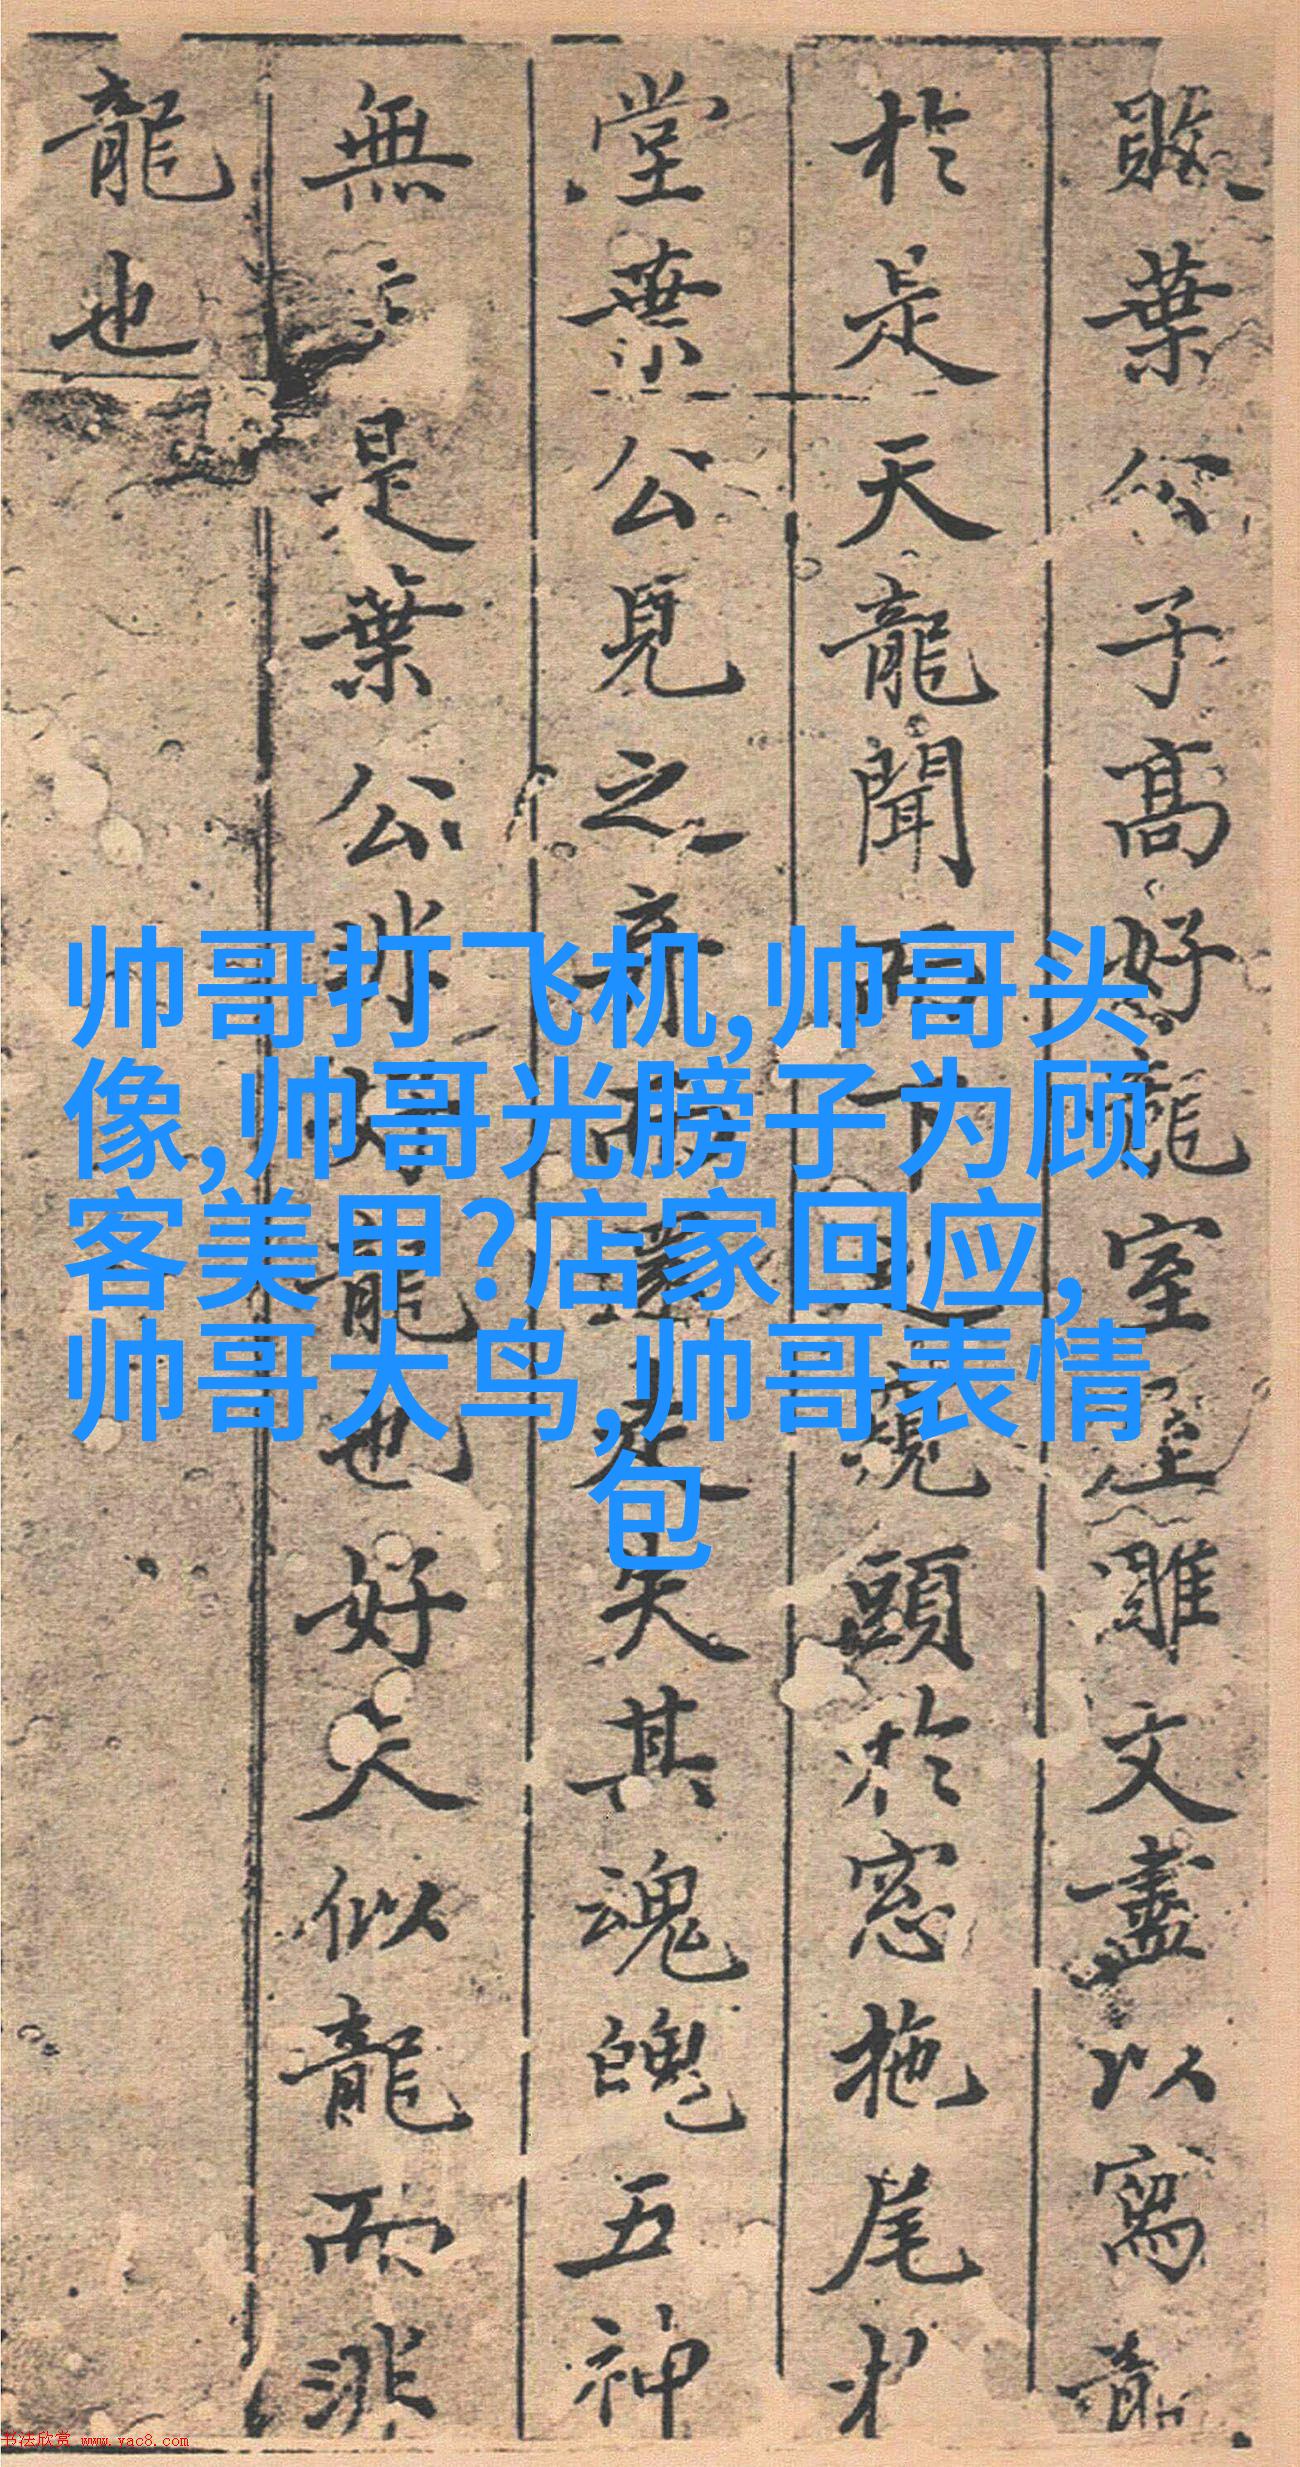 敗葉公子高好龍室屋雕文盡以寫龍
於是天龍聞而下之窺頭於窓拖尾於
堂葉公見之弃而還走失其魂魄五神
無主是葉公非好龍也好夫似龍而非
龍也
帅哥打飞机,帅哥头
像,帅哥光膀子为顾
客美甲?店家回应,
帅哥大鸟,帅哥表情
包
书法欣赏 www.yac8.com